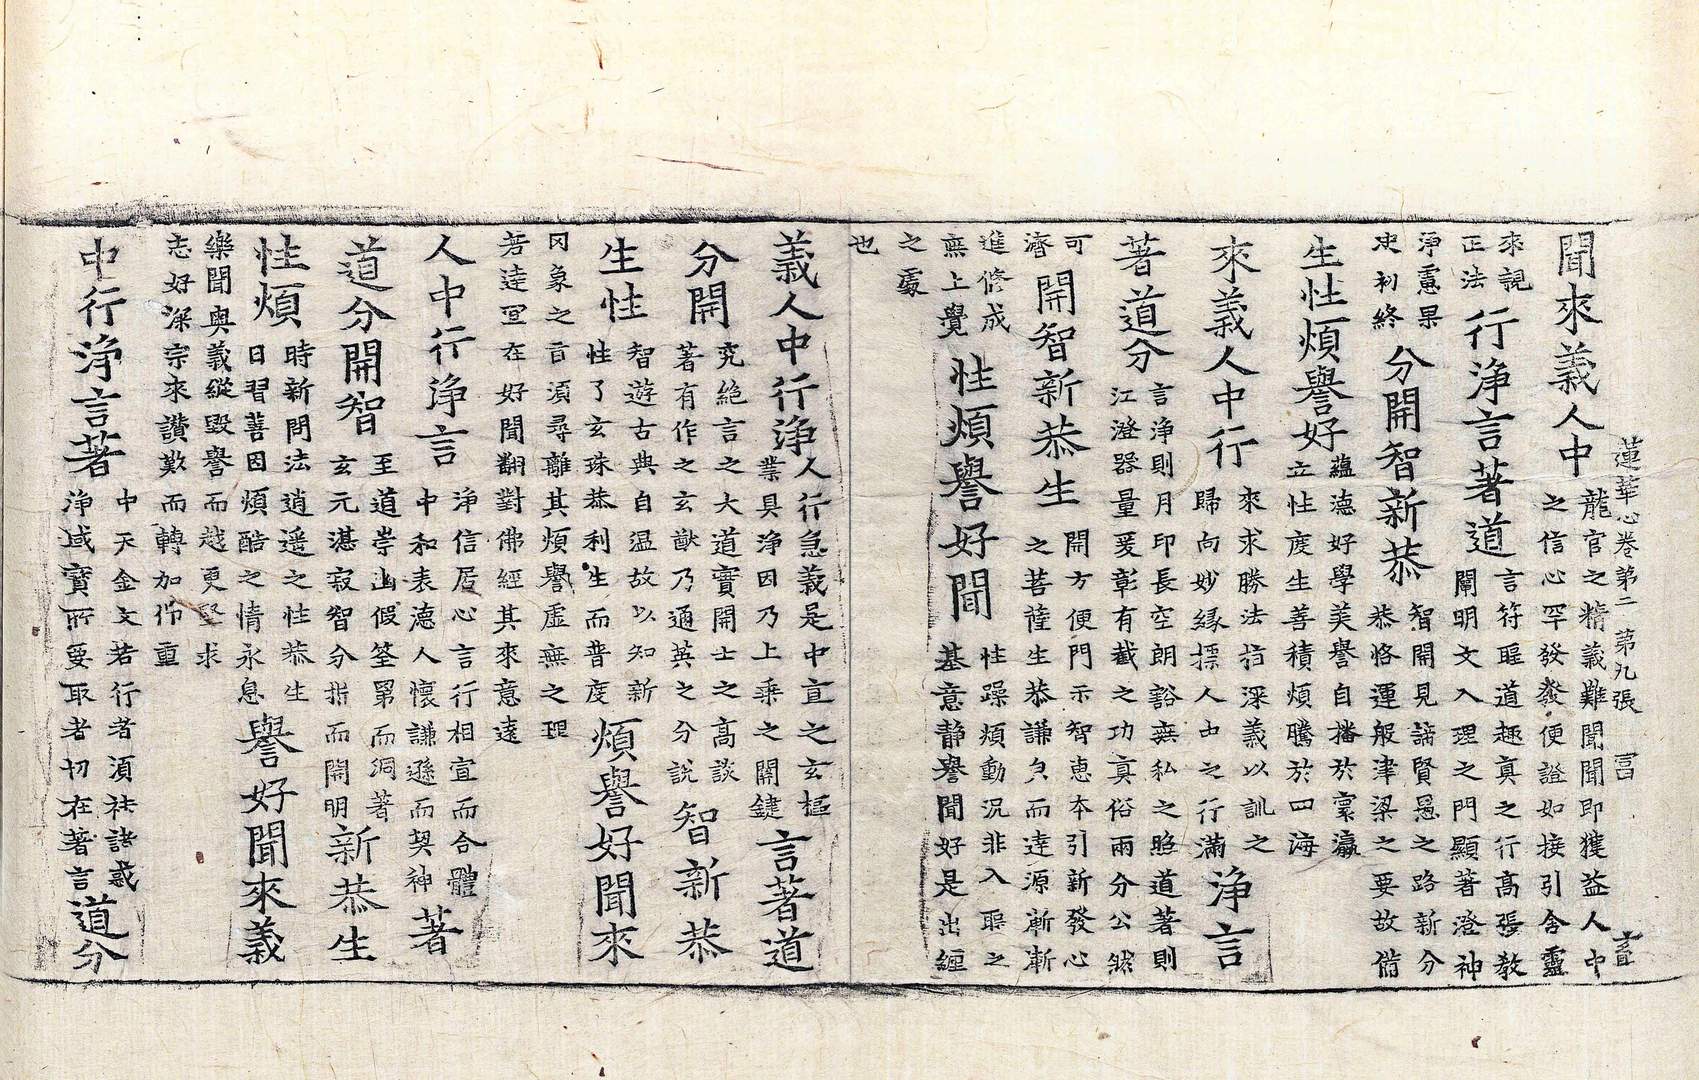 蓮華心卷第二 第九張
聞來義人中
龍官之精義難聞聞即獲益人中
之信心罕發發便證如接引含靈
來親
正法
行淨言著道
言符聖道趣真之行髙張教
闡明文入理之門顯著澄神
淨慮果
決初終
分開智新恭
智開見諦賢愚之路新分
恭恪運般津梁之要故偕
生性煩譽好
蘊德好學美譽自播於寰瀛
立性度生善積煩騰於四海
來義人中行
來求勝法指深義以訓之
歸向妙縁標人中之行滿
淨言
著道分
言淨則月印長空朗豁無私之照道著則
江澄器量爰彰有截之功真俗兩分公然
可
濟
開智新恭生
開方便門示智惠本引新發心
之菩薩生恭謙負而達源漸漸
進修成
無上覺
性煩譽好聞
性躁煩動況非入聖之
基意静譽聞好是出纏
之處
也
義人中行淨
人行急義是中宣之玄樞
業具淨因乃上乘之關鍵
言著道
分開
究絶言之大道實開士之髙談
著有作之玄猷乃通英之分說
智新恭
生性
智遊古典自温故以知新
性了玄珠恭利生而普度
煩譽好聞來
罔象之言須尋離其煩譽虛無之理
若達宣在好聞翻對佛經其來意遠
人中行淨言
淨信居心言行相宣而合體
中和表德人懷謙遜而契神
著
道分開智
至道崇幽假筌罤而洞著
玄元湛寂智分指而開明
新恭生
性煩
時新問法逍遥之性恭生
日習善因煩酷之情永息
譽好聞來義
樂聞奥義縱毀譽而越更堅求
志好深宗來讃歎而轉加仰重
中行淨言著
中天金文若行者須祛諸惑
淨域寶所要取者切在著言
道分